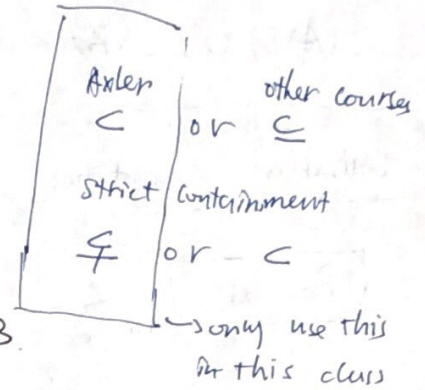 Axler other courses
⊂ or ⊆
strict containment
⊊ or ⊂
→ only use this
in this class
3.